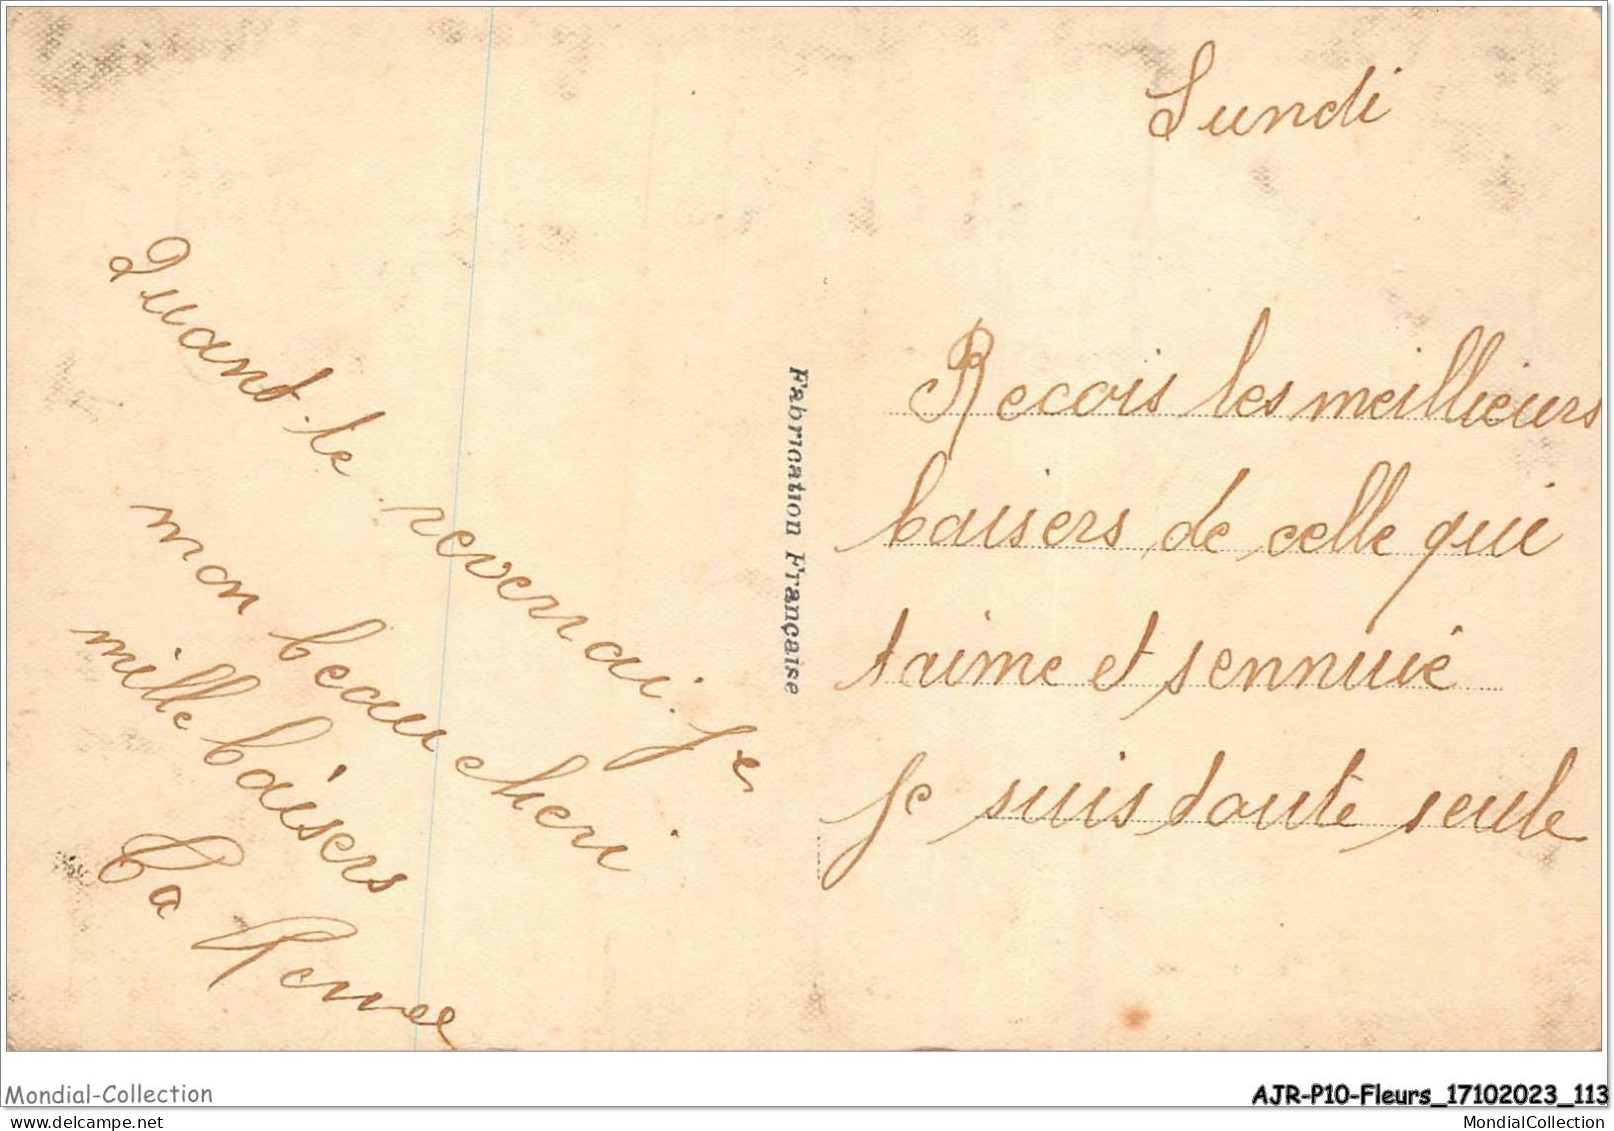 Lundi
Recois les meillieurs
baisers de celle qui
taime et sennuié
Je suis toute seule
Quant te reverrai. Je
mon beau cheri
mille baisers
Ta Renée
Fabrication Française
Mondial-Collection
AJR-P10-Fleurs_17102023_113
www.delcampe.net
MondialCollection